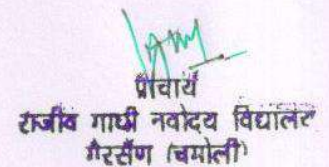 प्राचार्य
राजीव गाधी नवोदय विद्यालय
गैरसैंण (चमोली)